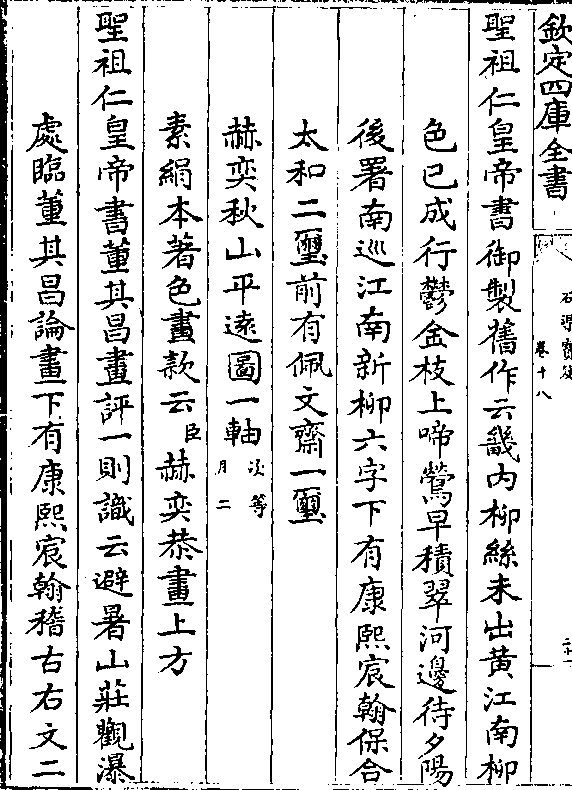 欽定四庫全書
卷十八
聖祖仁皇帝書御製舊作云畿内柳絲未出黄江南柳
色已成行鬱金枝上啼鶯早積翠河邊待夕陽
後署南巡江南新柳六字下有康熙宸翰保合
太和二璽前有佩文齋一璽
赫奕秋山平逺圖一軸次等月二
素絹本著色畫款云臣赫奕恭畫上方
聖祖仁皇帝書董其昌畫評一則識云避暑山莊觀瀑
處臨董其昌論畫下有康熙宸翰稽古右文二